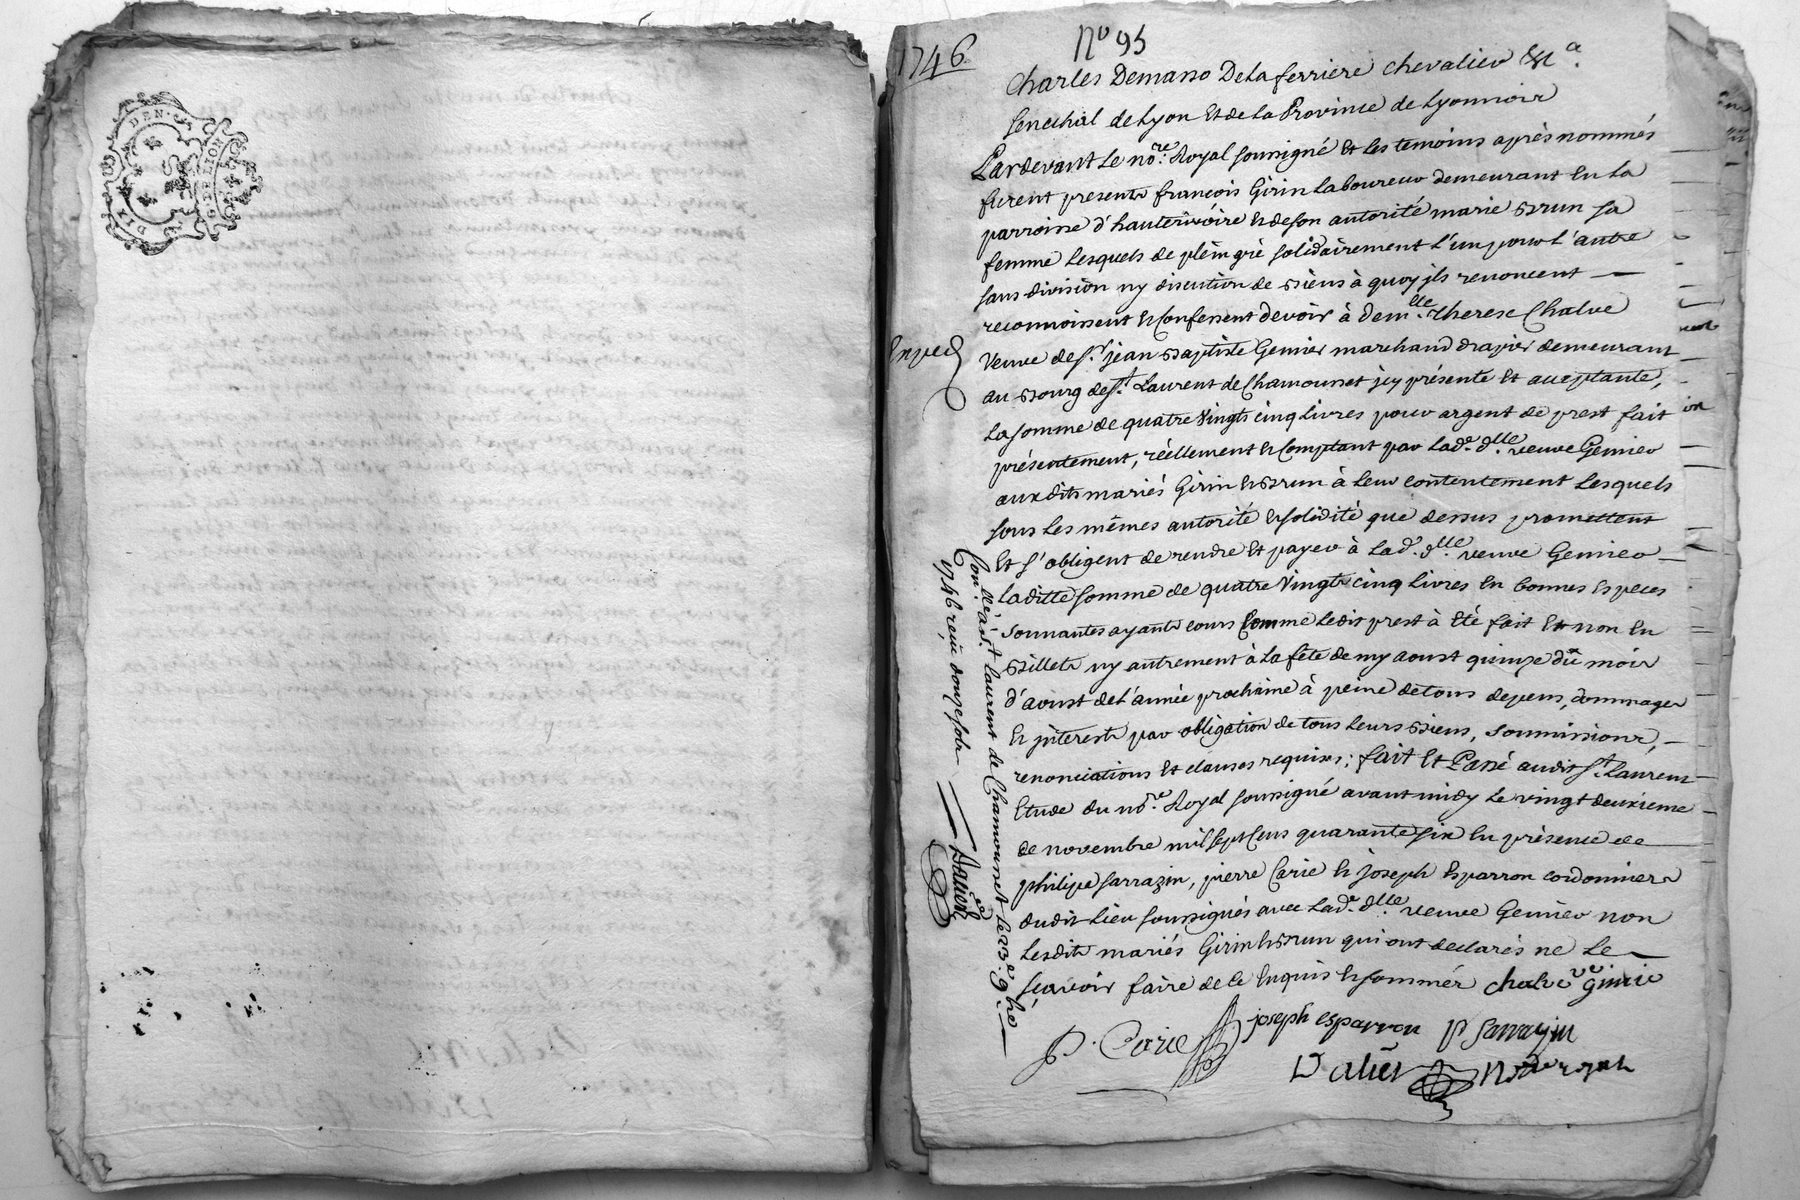 DEN.
G. DE LION
DEUX
1746
No 95
Charles Demasso De la ferriere chevalier &a.
Senechal de Lyon Et de La Province de Lyonnois
Pardevant Le nore. Royal soussigné Et les temoins après nommés
furent presents françois Girin Laboureur demeurant En La
parroisse d'hauterivoire Et de son autorité marie Brun sa
femme Lesquels de plein gré solidairement L'un pour L'autre
sans division ny discution de Biens à quoy jls renoncent —
reconnoissent Et Confessent devoir à demlle. Therese Chalve
Exped
Veuve de sr. jean Baptiste Genier marchand drapier demeurant
au Bourg de st. Laurent de Chamousset jcy présente Et acceptante,
La somme de quatre Vingts cinq Livres pour argent de prest fait
présentement, réellement Et Comptant par Lade. dlle. veuve Genier
auxdits mariés Girin Et Brun à Leur contentement Lesquels
sous Les mêmes autorité Et solidité que dessus promettent
Et s'obligent de rendre Et payer à Lade. dlle. veuve Genier —
Laditte somme de quatre Vingts cinq Livres En bonnes Especes
sonnantes ayants cours Comme Ledit prest à Eté fait Et non En
Billets ny autrement à La fête de my aoust quinze du mois
d'aoust de L'année prochaine à peine de tous depens, dommages
Et jnterests par obligation de tous Leurs Biens, soumissions, —
renonciations Et clauses requises; fait Et Passé audit st. Laurent
Etude du nore. Royal soussigné avant midy Le vingt deuxieme
de novembre mil sept Cens quarante six En présence de
philipe sarrazin, pierre Carie Et joseph Esparron cordonniers
dudit Lieu soussignés avec Lade. dlle. veuve Genier non
Lesdits mariés Girin Et Brun qui ont declarés ne Le
sçavoir faire de ce Enquis Et sommés chalve ve ginie
P. Carie joseph esparron P Sarrazin
Dalier Nore royal
Conllé à st. Laurent de Chamousset Le 23e. 9bre
1746 reçu douze sols — Dalier